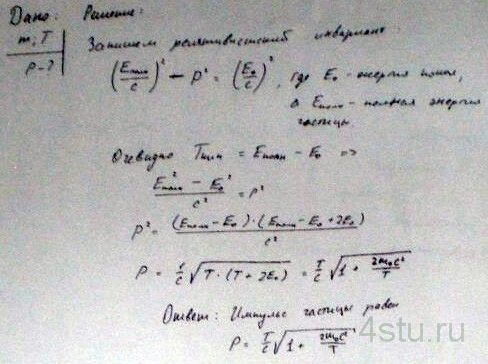 Дано: Решение:
m; T
p-?
Запишем релятивистский инвариант
(Eполн/c)² - p² = (E₀/c)², где E₀ - энергия покоя,
а Eполн - полная энергия
частицы.
Очевидно Tкин = Eполн - E₀ =>
(E²полн - E₀²)/c² = p²
p² = (Eполн - E₀)·(Eполн - E₀ + 2E₀)/c²
p = 1/c √(T·(T + 2E₀)) = T/c √(1 + 2m₀c²/T)
Ответ: Импульс частицы равен
p = T/c √(1 + 2m₀c²/T)
4stu.ru